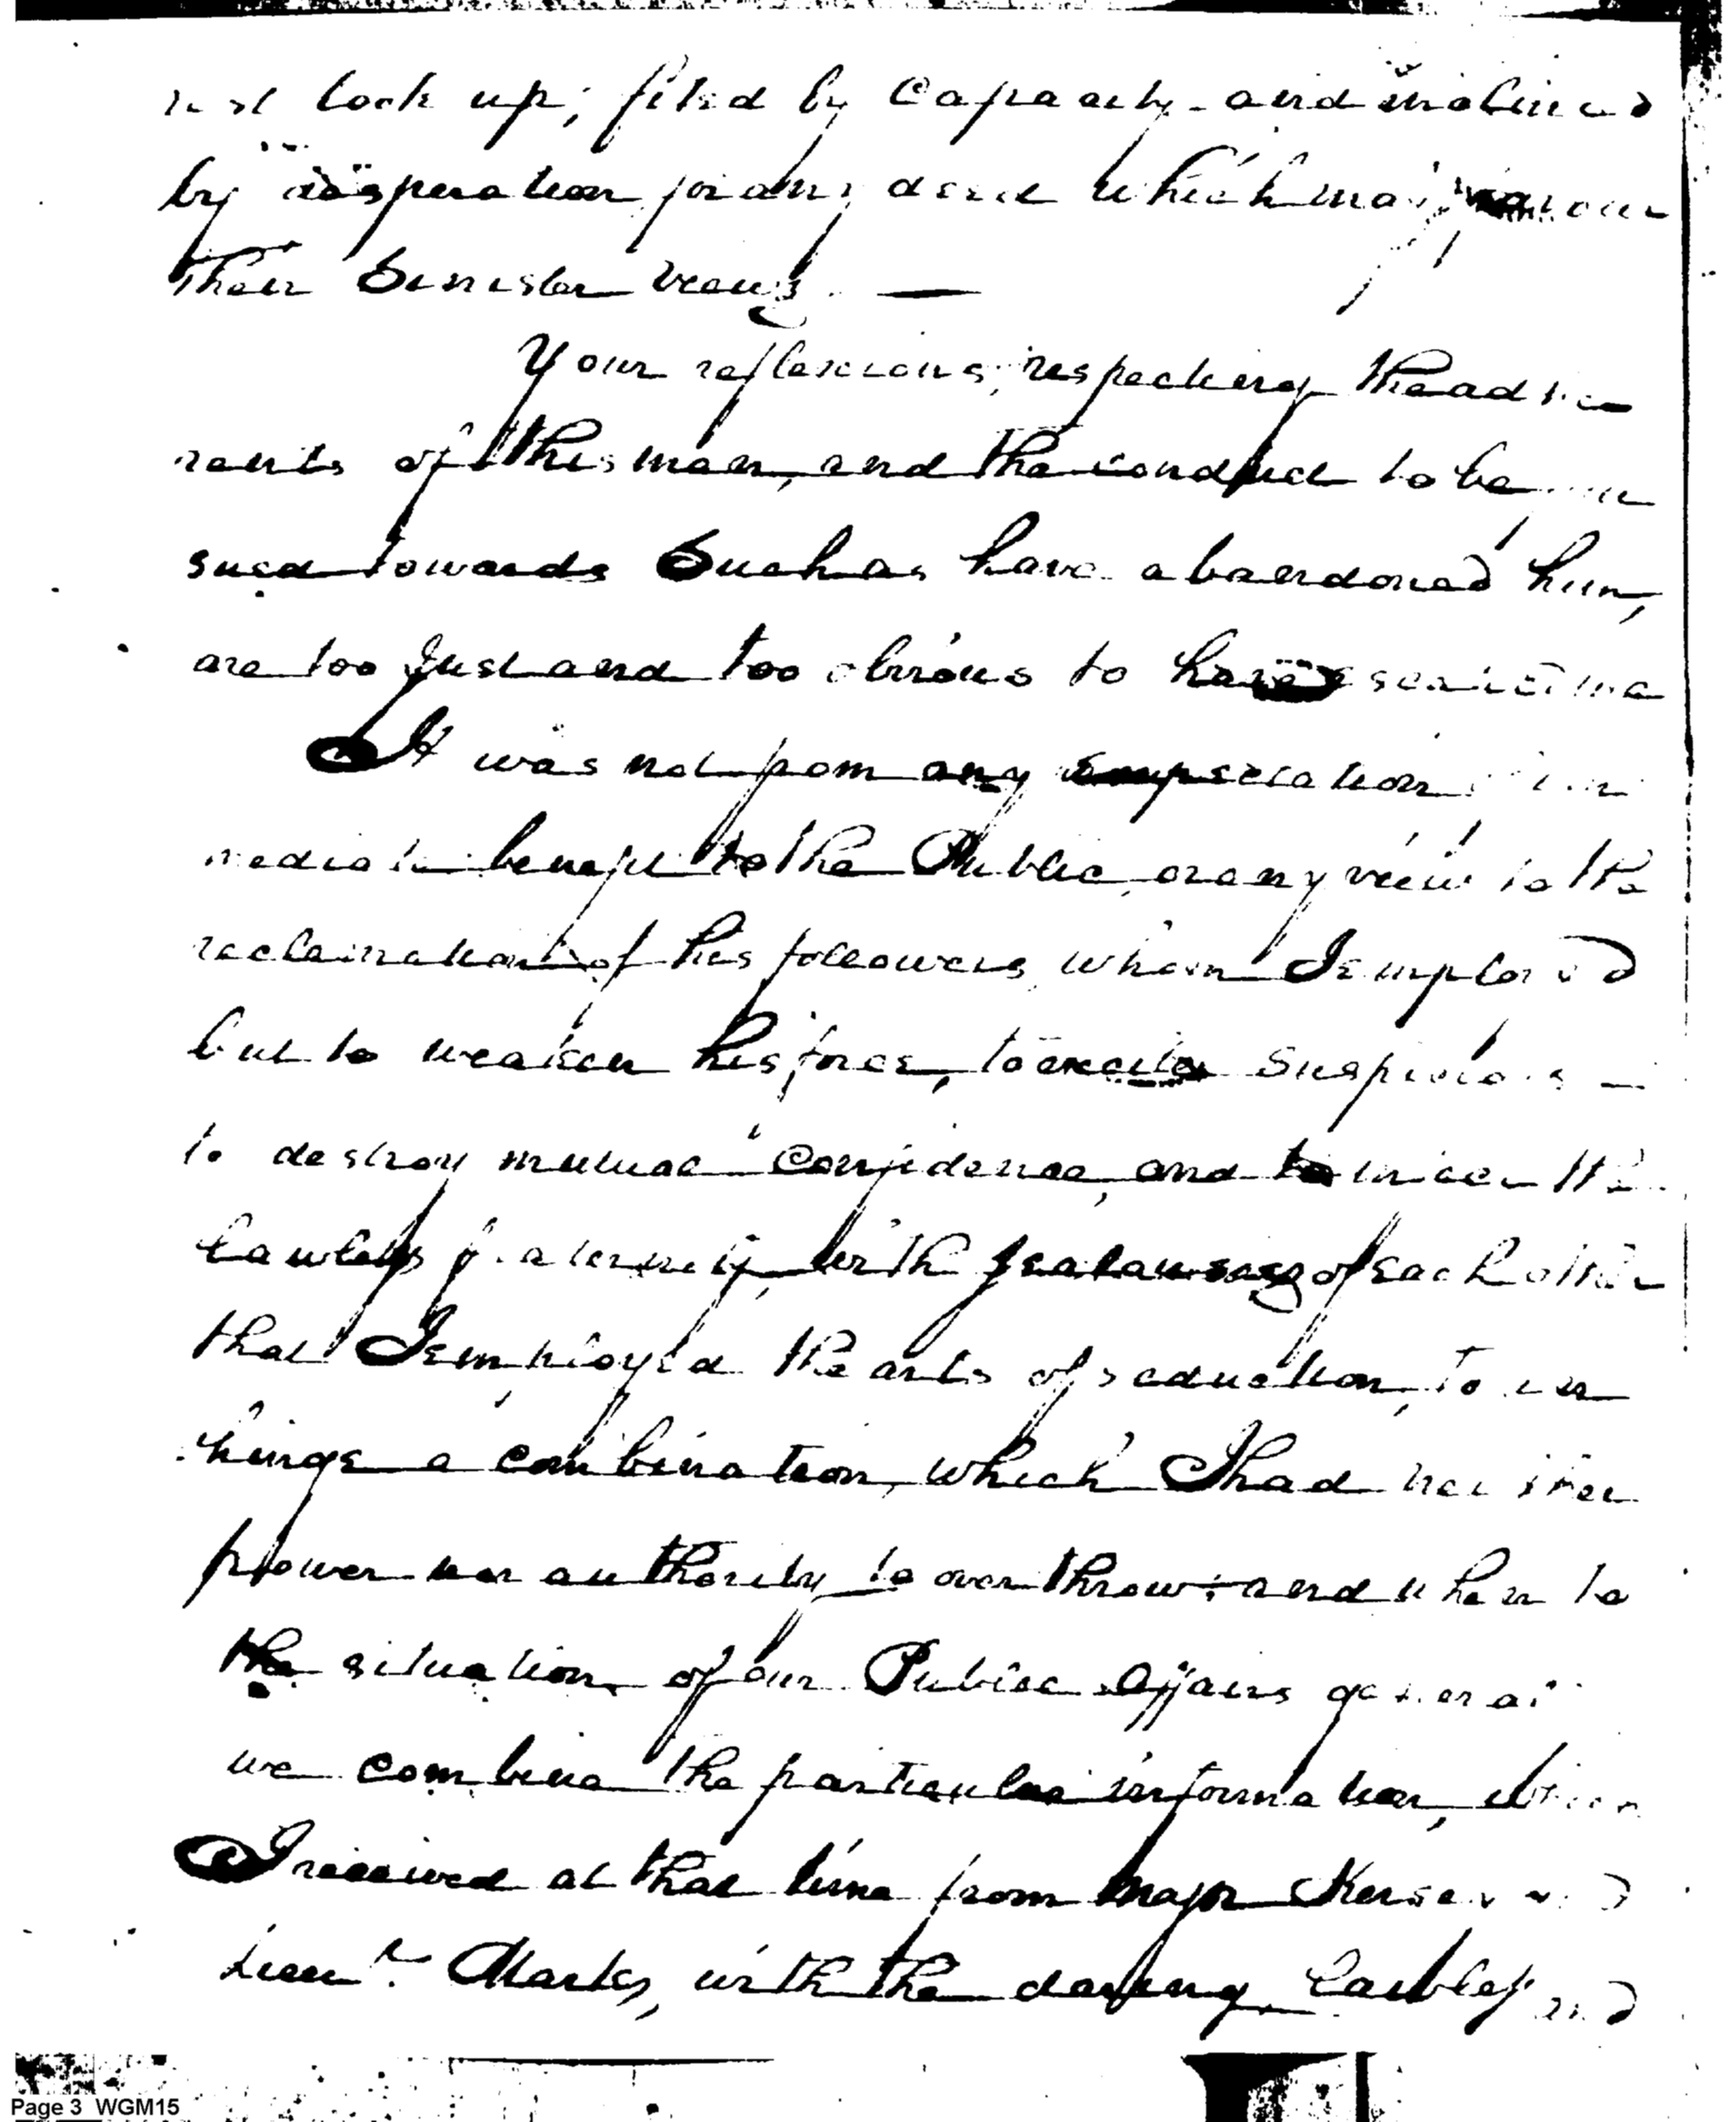 look up; fited by Capacity and inclined
by desperation for any deed which may favour
their Sinister views —
Your reflexions, respecting the adhe
rents of this man, and the conduct to be pur
sued towards Such as have abandoned him,
are too just and too obvious to have escaped me
It was not from any expectation of im
mediate benefit to the Public, or any view to the
reclamation of his followers, whom I employed
but to weaken his force, to excite Suspicions —
to destroy mutual Confidence, and to infect the
Lawless fraternity, with jealousies of each other
that I employed the arts of seduction, to un
hinge a combination, which I had neither
power nor authority to overthrow; and when to
the situation of our Public Affairs general
we combine the particular information, which
I received at that time from Major Kersey and
Lieut. Marks, with the daring, Lawless and
Page 3 WGM15